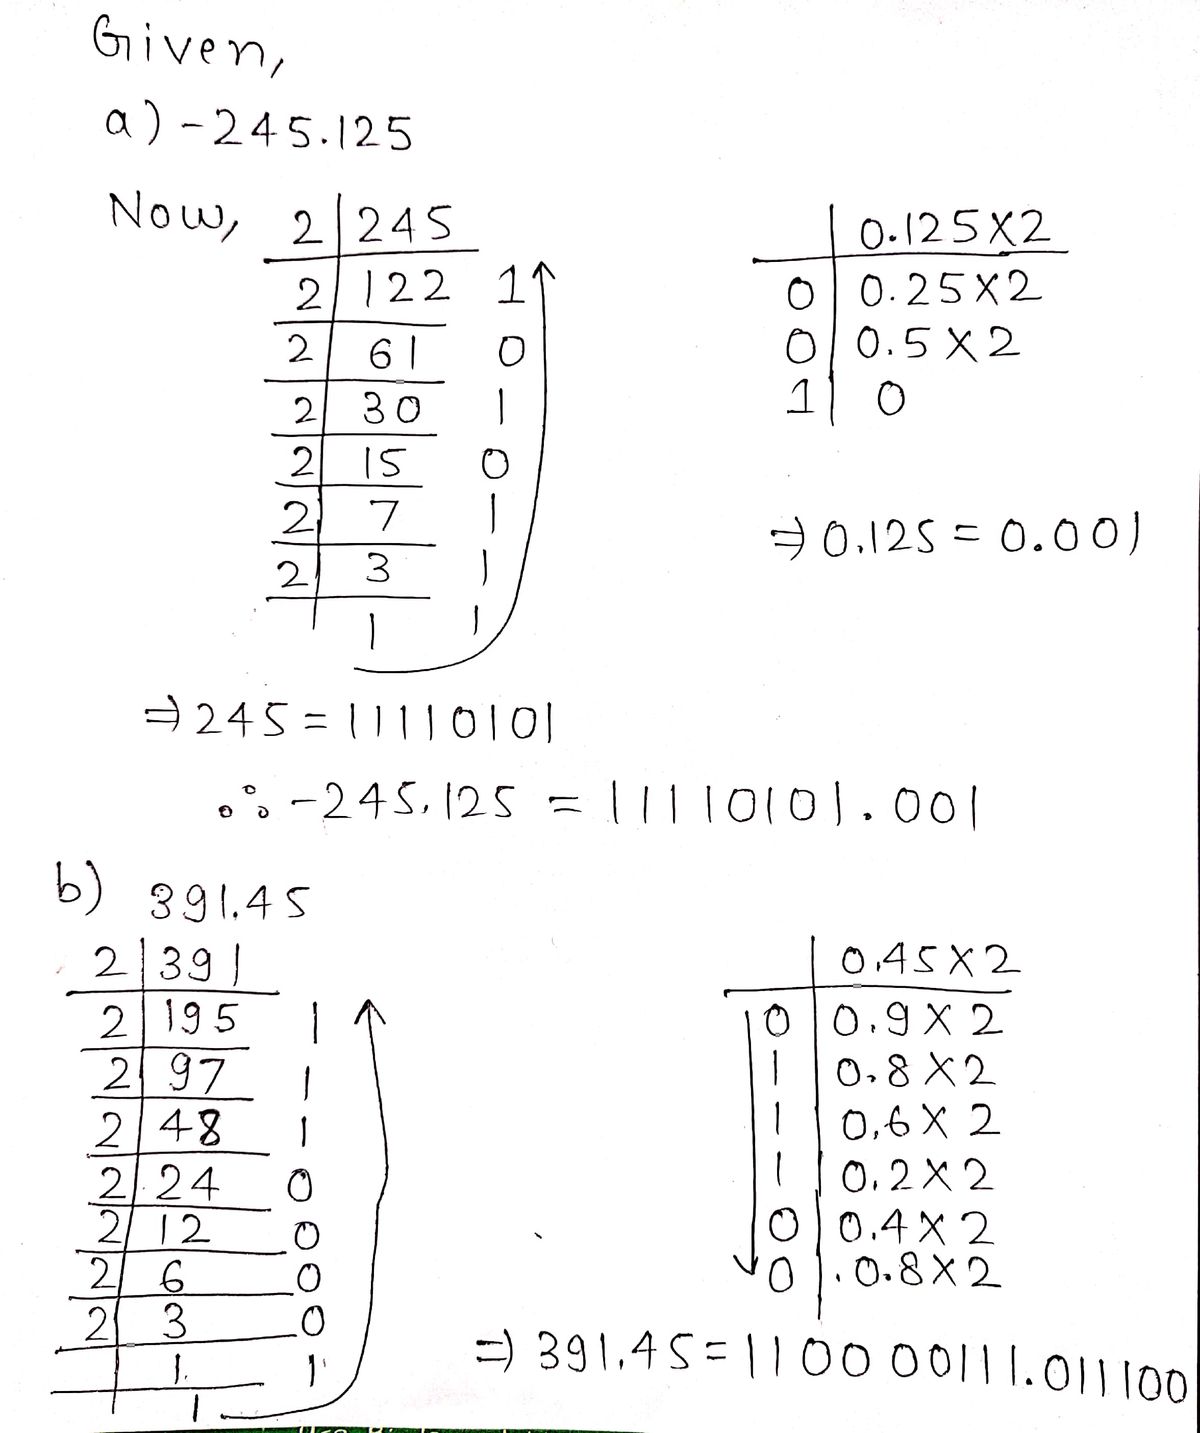 Given,
a) -245.125
Now, 2 | 245
2 | 122 1
2 | 61 0
2 | 30 1
2 | 15 0
2 | 7 1
2 | 3 1
1 1
0.125×2
0 | 0.25×2
0 | 0.5×2
1 | 0
⇒ 0.125 = 0.001
⇒ 245 = 11110101
∴ -245.125 = 11110101.001
b) 391.45
2 | 391
2 | 195 1
2 | 97 1
2 | 48 1
2 | 24 0
2 | 12 0
2 | 6 0
2 | 3 0
1 1
1
0.45×2
0 | 0.9×2
1 | 0.8×2
1 | 0.6×2
1 | 0.2×2
0 | 0.4×2
0 | 0.8×2
⇒ 391.45 = 110000111.011100